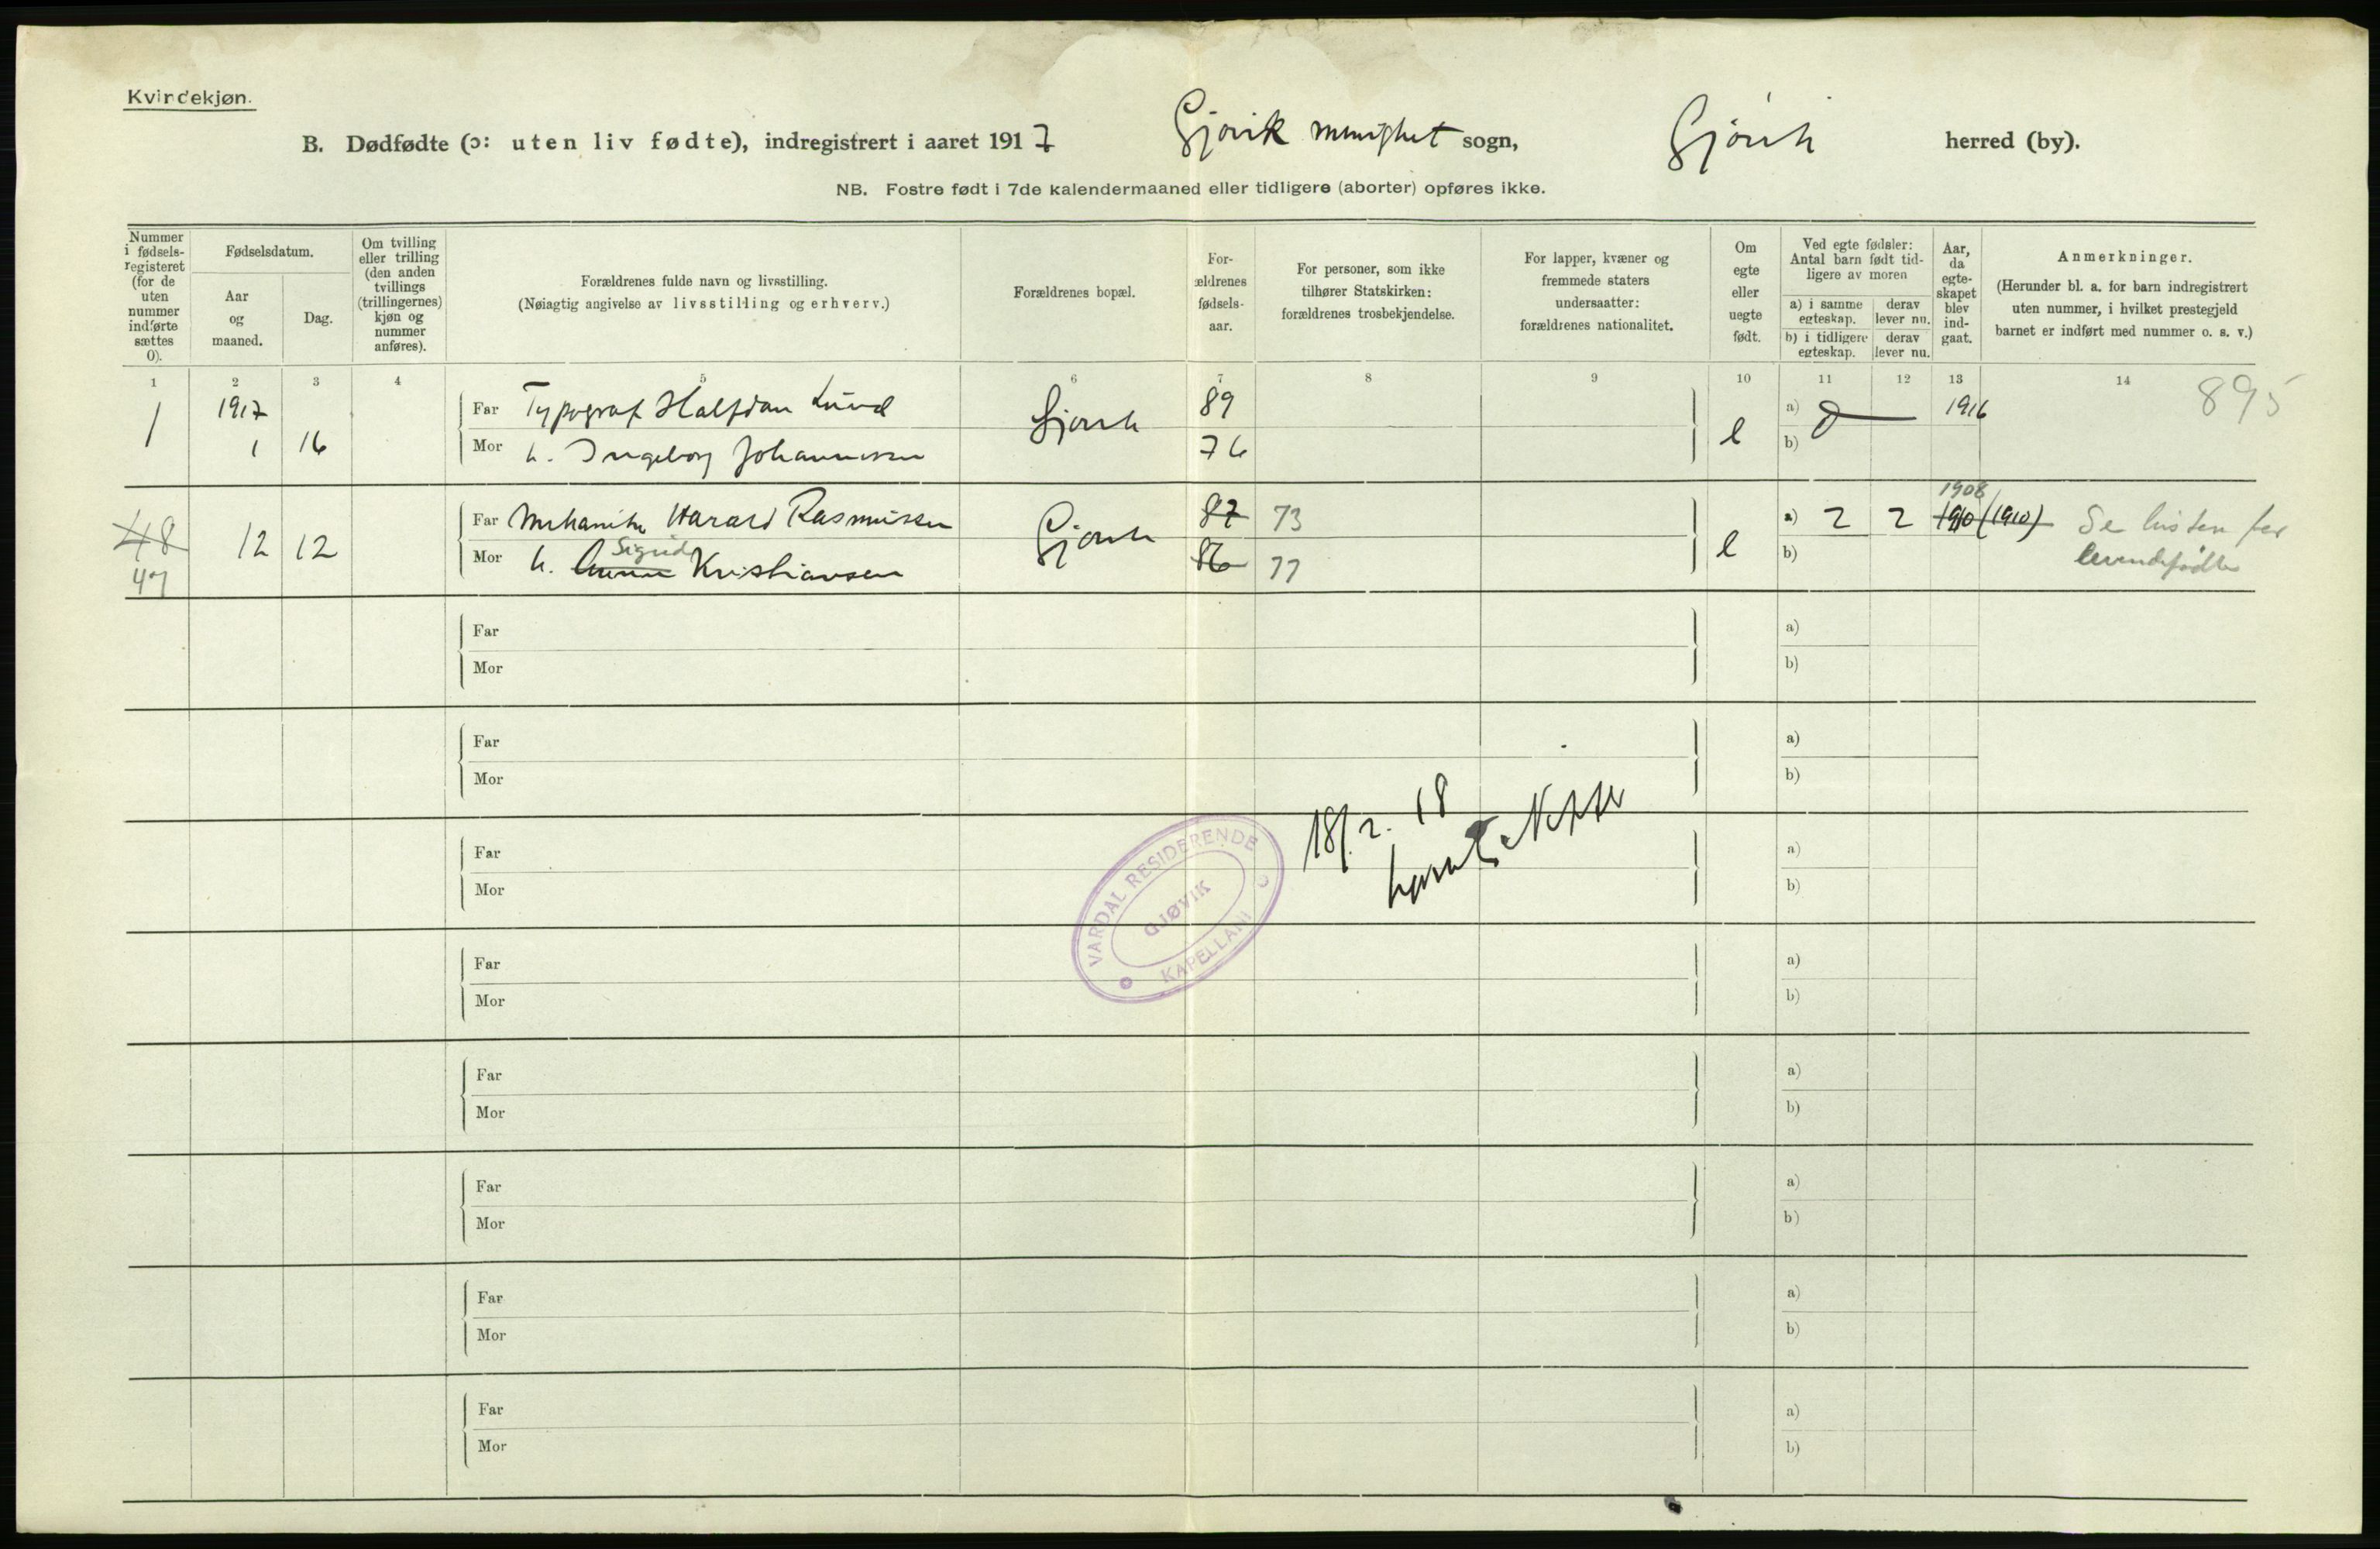 Kvindekjøn.
B. Dødfødte (ɔ: uten liv fødte), indregistrert i aaret 1917 Gjøvik menighet sogn, Gjøvik herred (by).
NB. Fostre født i 7de kalendermaaned eller tidligere (aborter) opføres ikke.
Nummer i fødsels-registeret (for de uten nummer indførte sættes 0).
Fødselsdatum.
Aar og maaned.
Dag.
Om tvilling eller trilling (den anden tvillings (trillingernes) kjøn og nummer anføres).
Forældrenes fulde navn og livsstilling.
(Nøiagtig angivelse av livsstilling og erhverv.)
Forældrenes bopæl.
For-ældrenes fødsels-aar.
For personer, som ikke tilhører Statskirken: forældrenes trosbekjendelse.
For lapper, kvæner og fremmede staters undersaatter: forældrenes nationalitet.
Om egte eller uegte født.
Ved egte fødsler: Antal barn født tid-ligere av moren
a) i samme egteskap. derav lever nu.
b) i tidligere egteskap. derav lever nu.
Aar, da egte-skapet blev ind-gaat.
Anmerkninger.
(Herunder bl. a. for barn indregistrert uten nummer, i hvilket prestegjeld barnet er indført med nummer o. s. v.)
1 2 3 4 5 6 7 8 9 10 11 12 13 14
895
1 1917 1 16 Far Typograf Halfdan Lund Gjøvik 89 e a) 0 1916
Mor h. Ingeborg Johannessen 76 b)
48 47 12 12 Far Mekaniker Harald Rasmussen Gjøvik 87 73 e a) 2 2 1908 1910 (1910) Se listen for
Mor h. Sigrid Kristiansen 86 77 b) levendefødte
Far a)
Mor b)
Far a)
Mor b)
18/2. 18
Far a)
Mor b)
VARDAL RESIDERENDE KAPELLANI
GJØVIK
Far a)
Mor b)
Far a)
Mor b)
Far a)
Mor b)
Far a)
Mor b)
Far a)
Mor b)